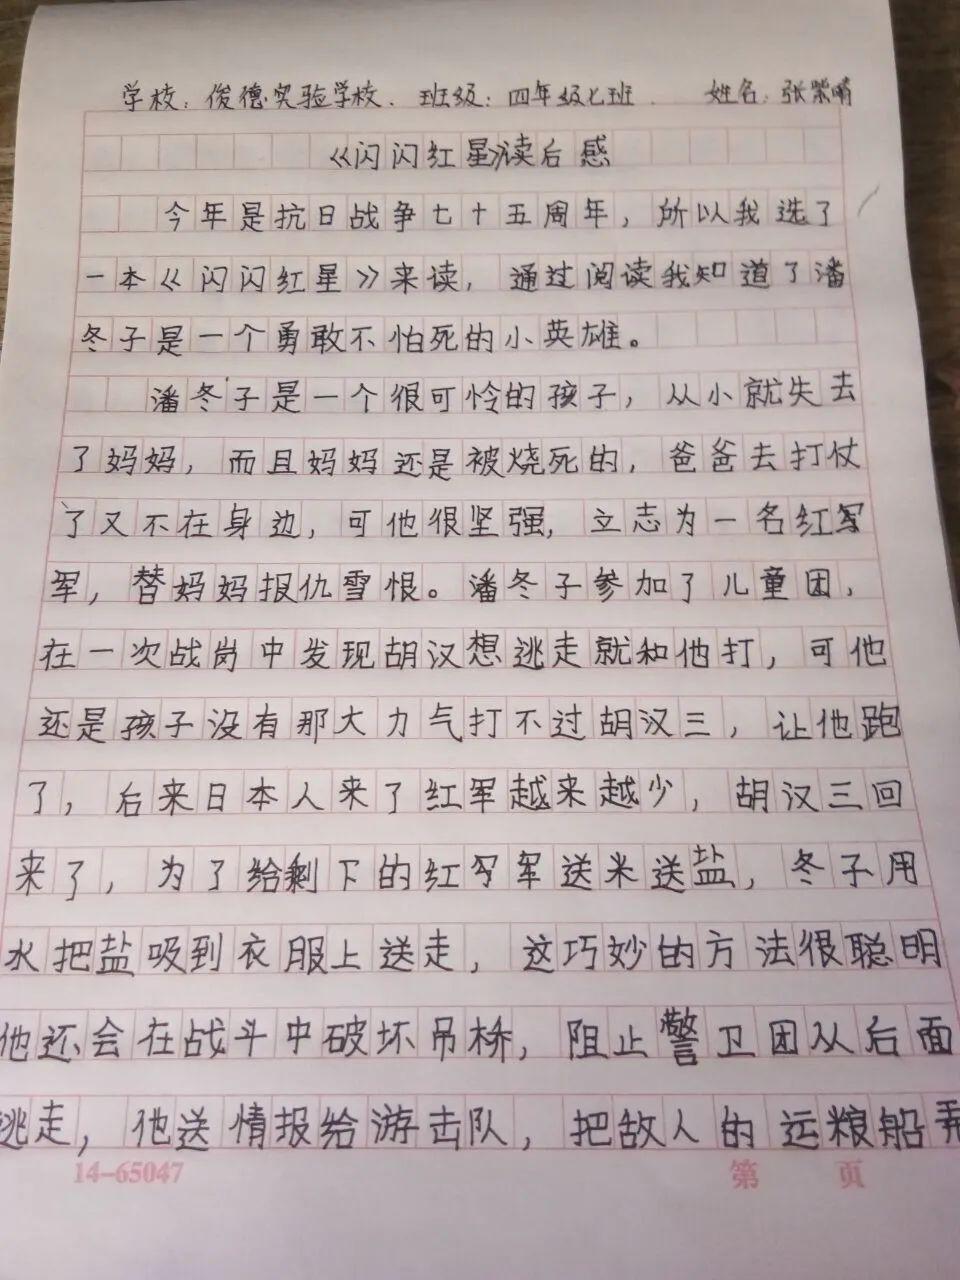 学校：俊德实验学校. 班级：四年级七班. 姓名：张紫晴
《闪闪红星》读后感
今年是抗日战争七十五周年，所以我选了
一本《闪闪红星》来读，通过阅读我知道了潘
冬子是一个勇敢不怕死的小英雄。
潘冬子是一个很可怜的孩子，从小就失去
了妈妈，而且妈妈还是被烧死的，爸爸去打仗
了又不在身边，可他很坚强，立志为一名红军
军，替妈妈报仇雪恨。潘冬子参加了儿童团，
在一次战岗中发现胡汉想逃走就和他打，可他
还是孩子没有那大力气打不过胡汉三，让他跑
了，后来日本人来了红军越来越少，胡汉三回
来了，为了给剩下的红军军送米送盐，冬子用
水把盐吸到衣服上送走，这巧妙的方法很聪明
他还会在战斗中破坏吊桥，阻止警卫团从后面
逃走，他送情报给游击队，把敌人的运粮船弄
14-65047
第 页